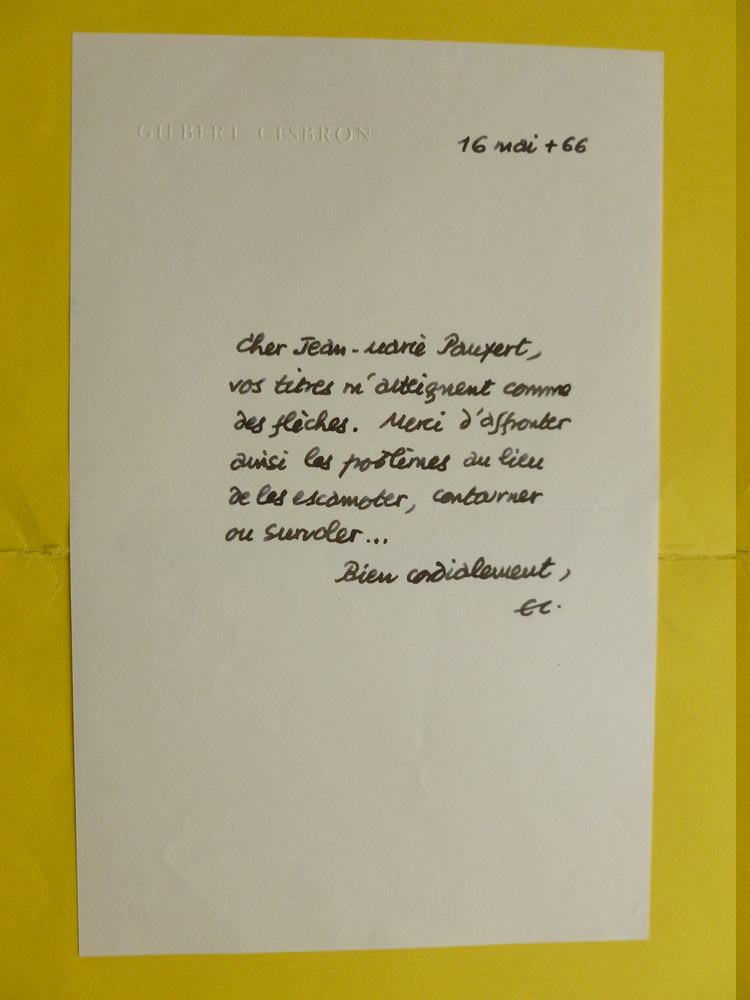 GILBERT CESBRON
16 mai +66
Cher Jean-Marie Paupert,
vos titres m'atteignent comme
des flèches. Merci d'affronter
ainsi les problèmes au lieu
de les escamoter, contourner
ou survoler...
Bien cordialement,
GC.